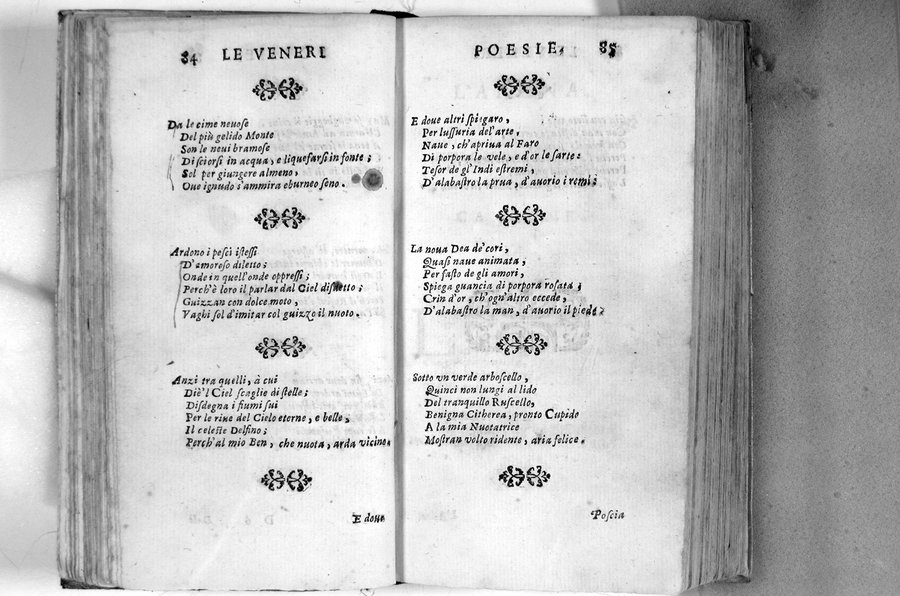 84 LE VENERI
Da le cime neuose
Del più gelido Monte
Son le neui bramose
Di sciorsi in acqua, e liquefarsi in fonte;
Sol per giungere almeno,
Oue ignudo s'ammira eburneo seno.
Ardono i pesci istessi
D'amoroso diletto;
Onde in quell'onde oppressi;
Perch'è loro il parlar dal Ciel disdetto;
Guizzan con dolce moto,
Vaghi sol d'imitar col guizzo il nuoto.
Anzi tra quelli, à cui
Diè'l Ciel scaglie di stelle;
Disdegna i fiumi sui
Per le riue del Cielo eterne, e belle,
Il celeste Delfino;
Perch'al mio Ben, che nuota, arda vicino.
E doue
POESIE, 85
E doue altri spiegaro,
Per lussuria del'arte,
Naue, ch'apriua al Faro
Di porpora le vele, e d'or le sarte:
Tesor de gl'Indi estremi,
D'alabastro la prua, d'auorio i remi;
La noua Dea de'cori,
Quasi naue animata,
Per fasto de gli amori,
Spiega guancia di porpora rosata;
Crin d'or, ch'ogn'altro eccede,
D'alabastro la man, d'auorio il piede.
Sotto vn verde arboscello,
Quinci non lungi al lido
Del tranquillo Ruscello,
Benigna Citherea, pronto Cupido
A la mia Nuotatrice
Mostran volto ridente, aria felice.
Poscia